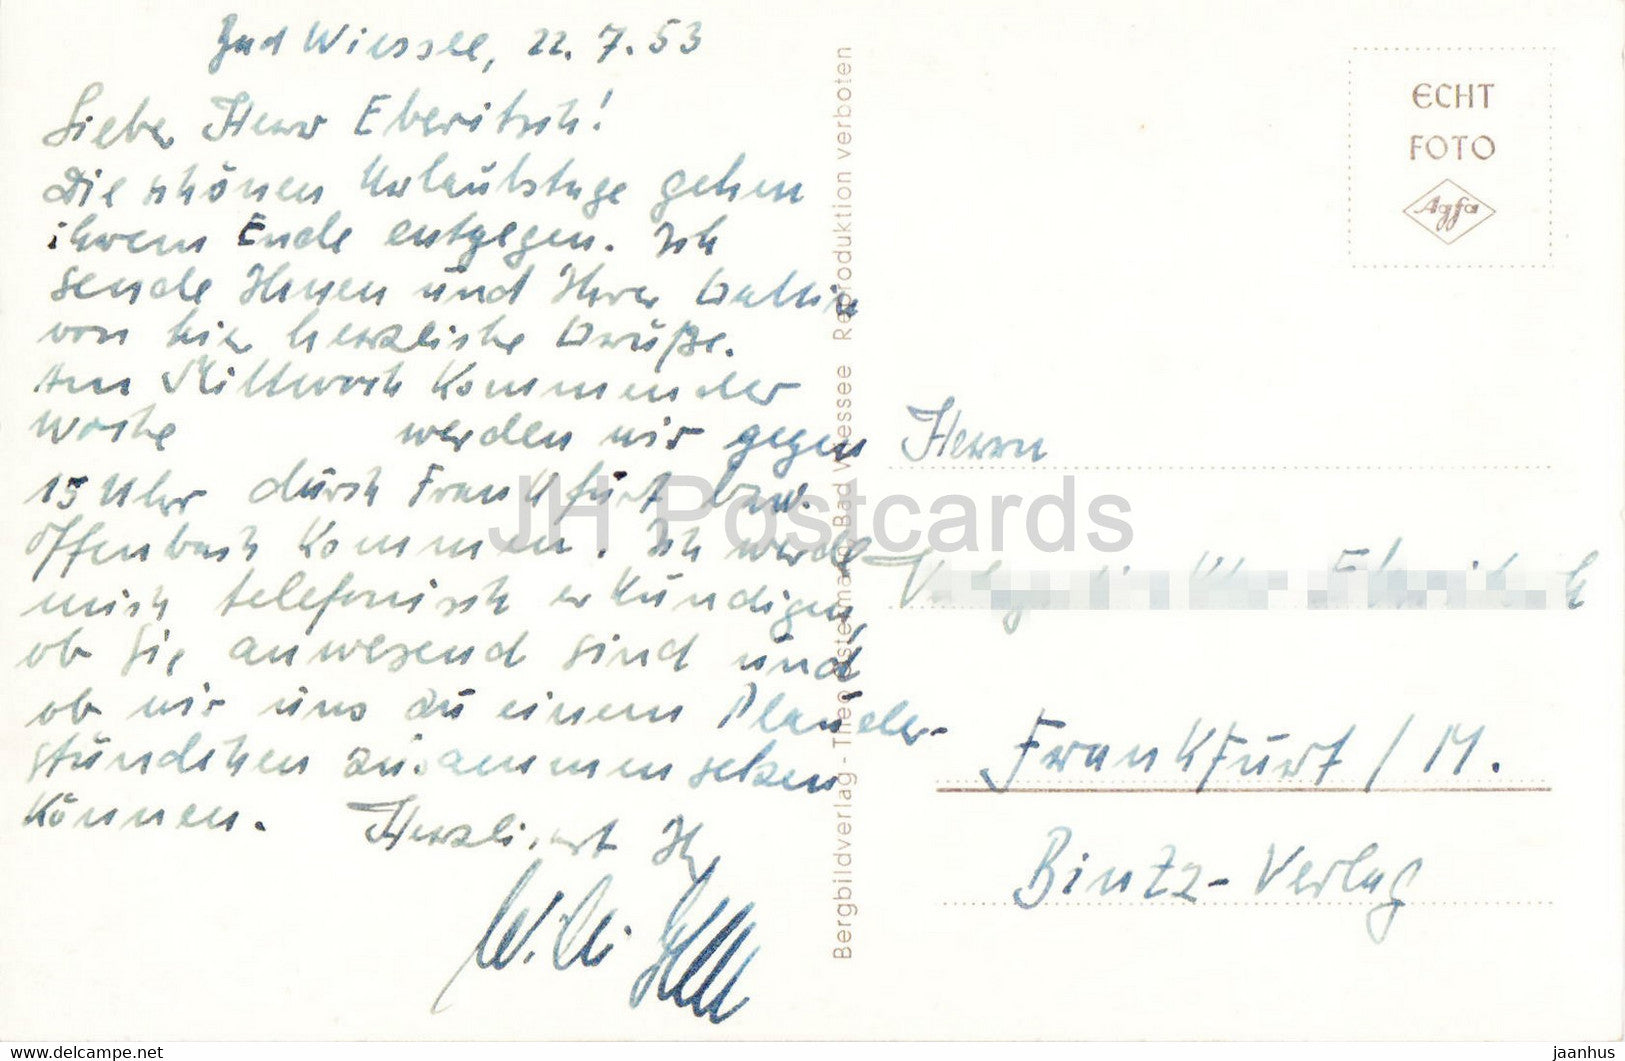 Bad Wiessee, 22.7.53
Lieber Herr Eberitsch!
Die schönen Urlaubstage gehen
ihrem Ende entgegen. Ich
sende Ihnen und Ihrer Gattin
von hier herzliche Grüße.
Am Mittwoch kommender
Woche werden wir gegen
15 Uhr durch Frankfurt bzw.
Offenbach kommen. Ich werde
mich telefonisch erkündigen,
ob Sie anwesend sind und
ob wir uns zu einem Plauder-
stündchen zusammensetzen
können. Herzlichst Ihr
Willi
Bergbildverlag - Theo Ostermann Bad Wiessee Reproduktion verboten
ECHT
FOTO
Agfa
Herrn
Frankfurt / M.
Bintz-Verlag
JH Postcards
www.delcampe.net
jaanhus